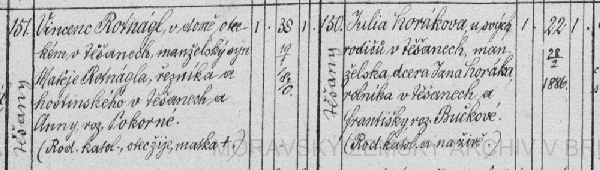 151. Vincenc Rotnágl, v domě otcov-
kém v Těšanech, manželský syn
Matěje Rotnagla, řezníka a
hostinského v Těšanech a
Anny roz. Pokorné.
(Rod. katol., otec žije, matka †.)
Těšany
1. 38 1
19
7
1870.
150. Julia Horákova, u svých
rodičů v Těšanech, man-
želská dcera Jana Horáka,
rolníka v Těšanech, a
Františky roz. Bučkové.
(Rod. katol. a na živě.)
Těšany
1. 22 1
28
2
1886.
MORAVSKÝ ZEMSKÝ ARCHIV V BR